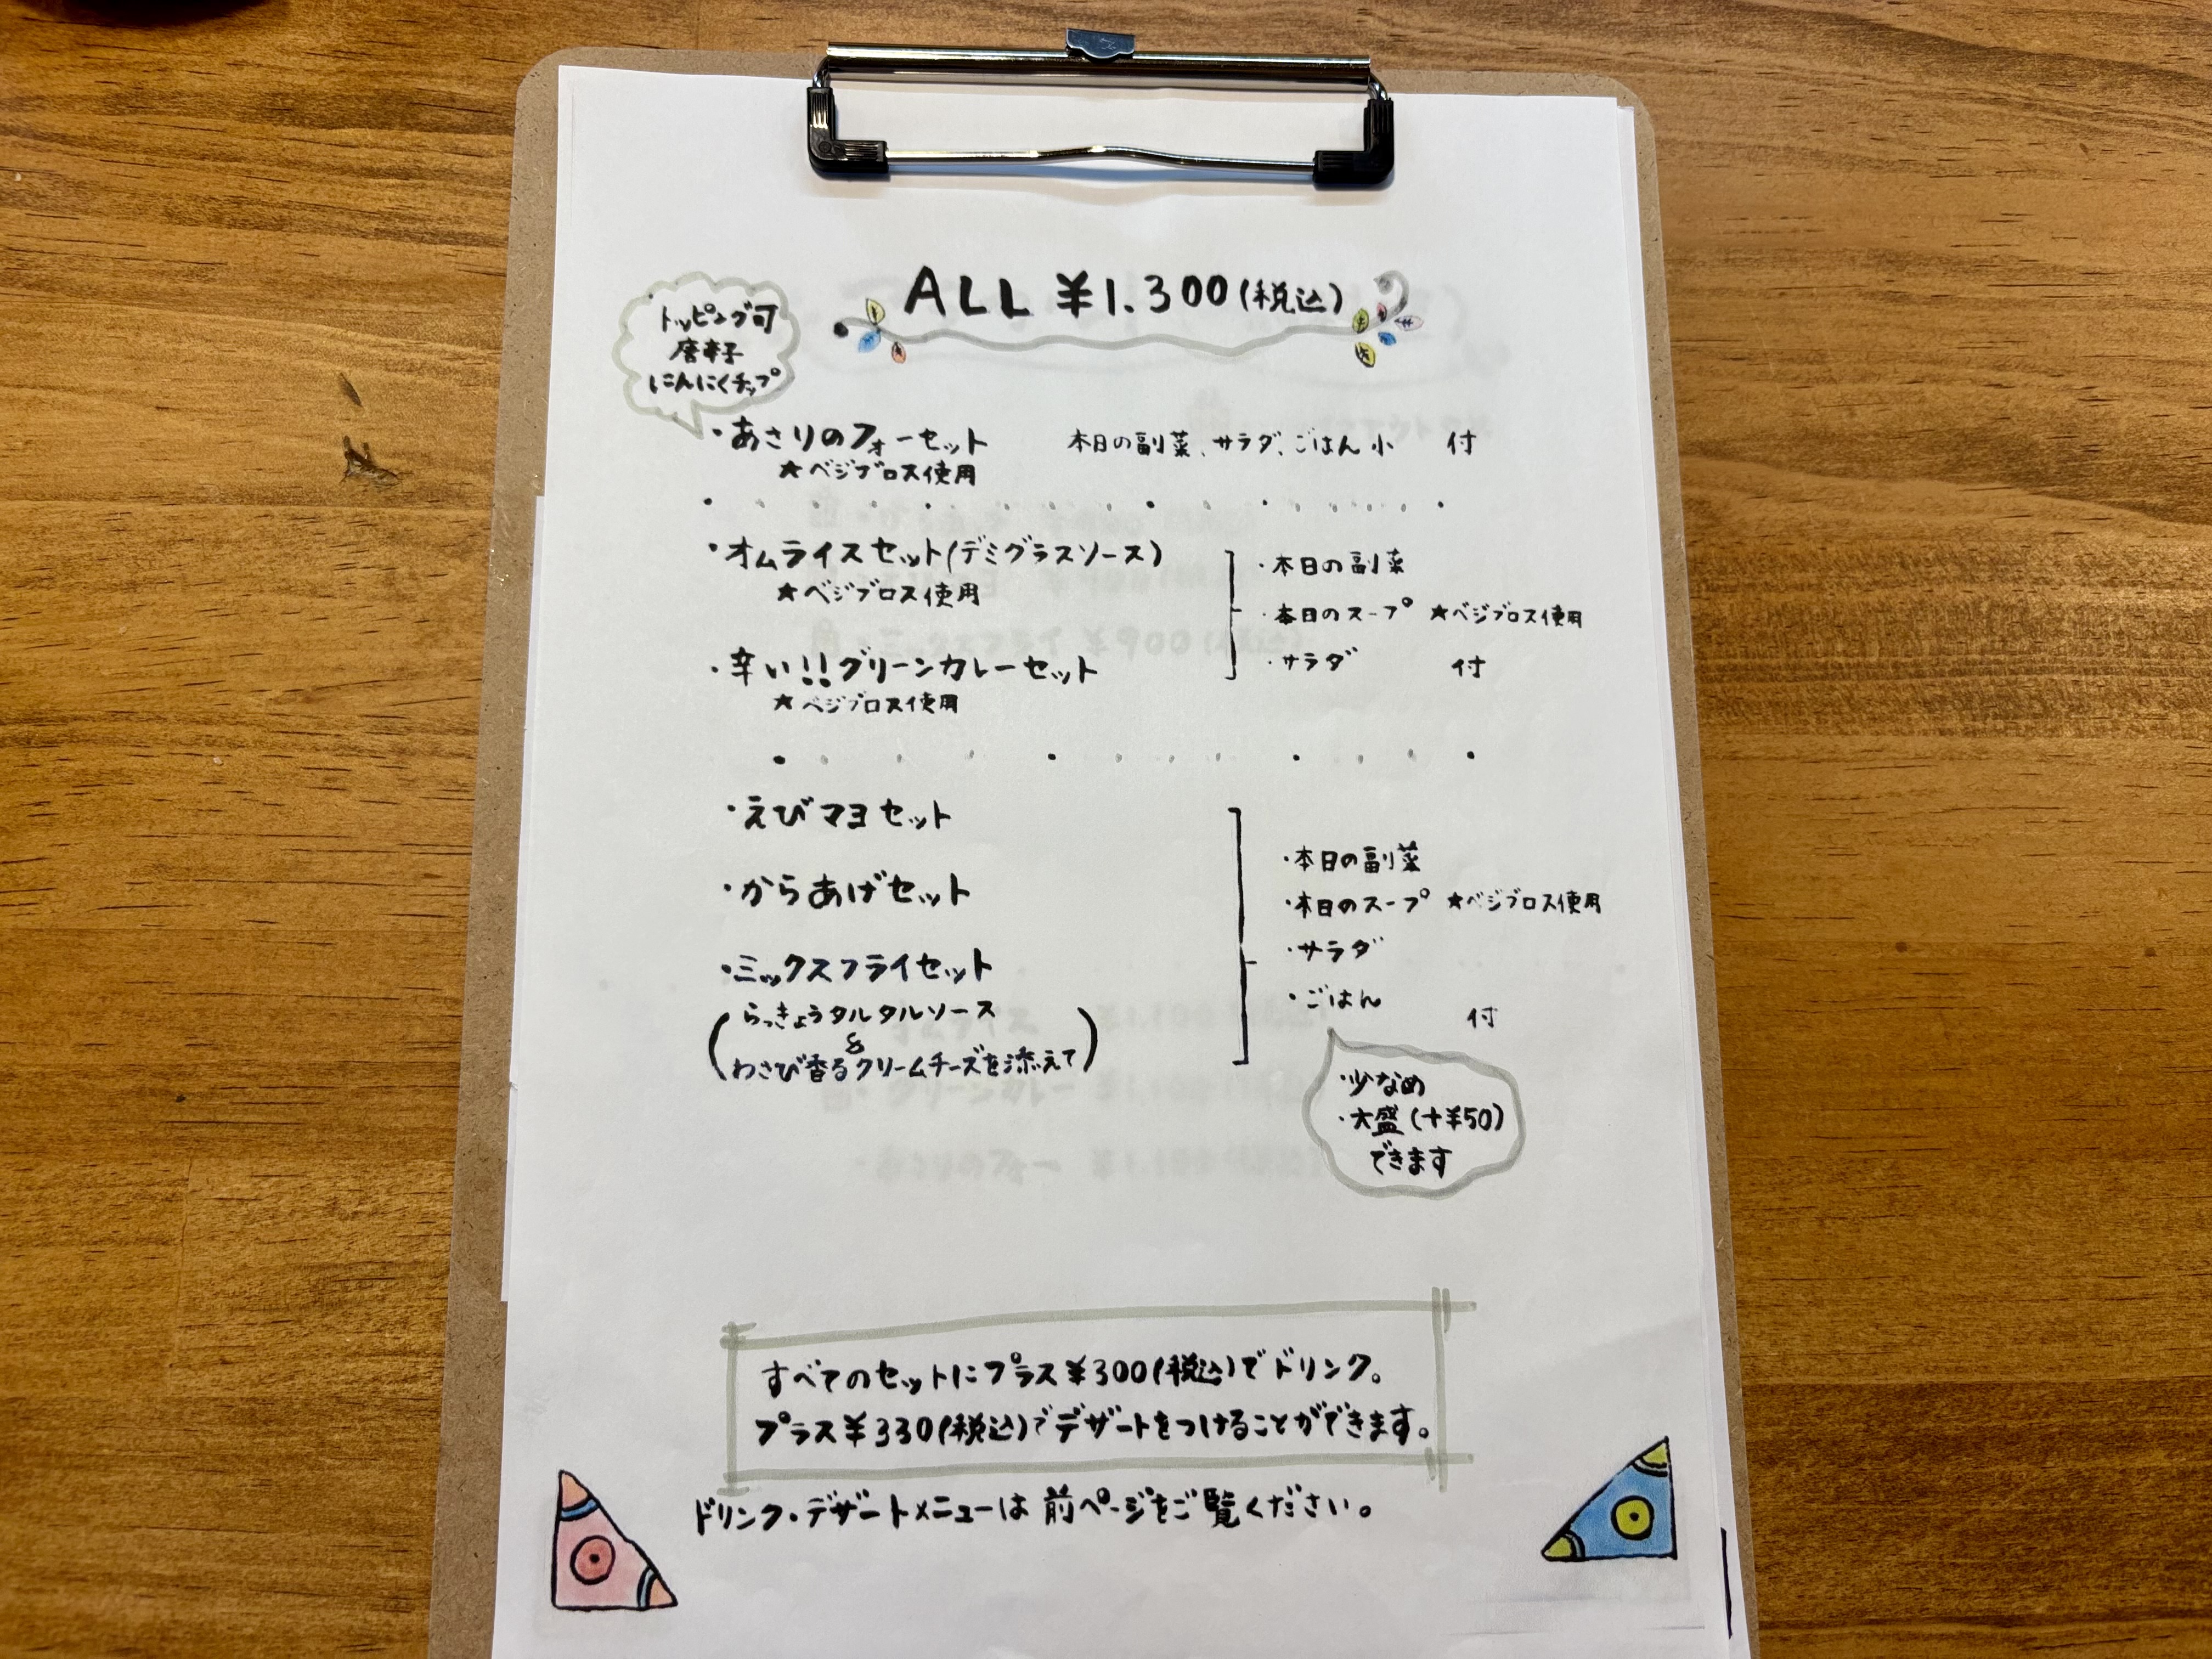 ALL ¥1.300(税込)
トッピング可
唐辛子
にんにくチップ
・あさりのフォーセット 本日の副菜、サラダ、ごはん小 付
★ベジブロス使用
・オムライスセット(デミグラスソース)
★ベジブロス使用
・辛い!!グリーンカレーセット
★ベジブロス使用
・本日の副菜
・本日のスープ ★ベジブロス使用
・サラダ 付
・えびマヨセット
・からあげセット
・ミックスフライセット
(らっきょうタルタルソース
&
わさび香るクリームチーズを添えて)
・本日の副菜
・本日のスープ ★ベジブロス使用
・サラダ
・ごはん 付
・少なめ
・大盛(+¥50)
できます
すべてのセットにプラス¥300(税込)でドリンク。
プラス¥330(税込)でデザートをつけることができます。
ドリンク・デザートメニューは前ページをご覧ください。